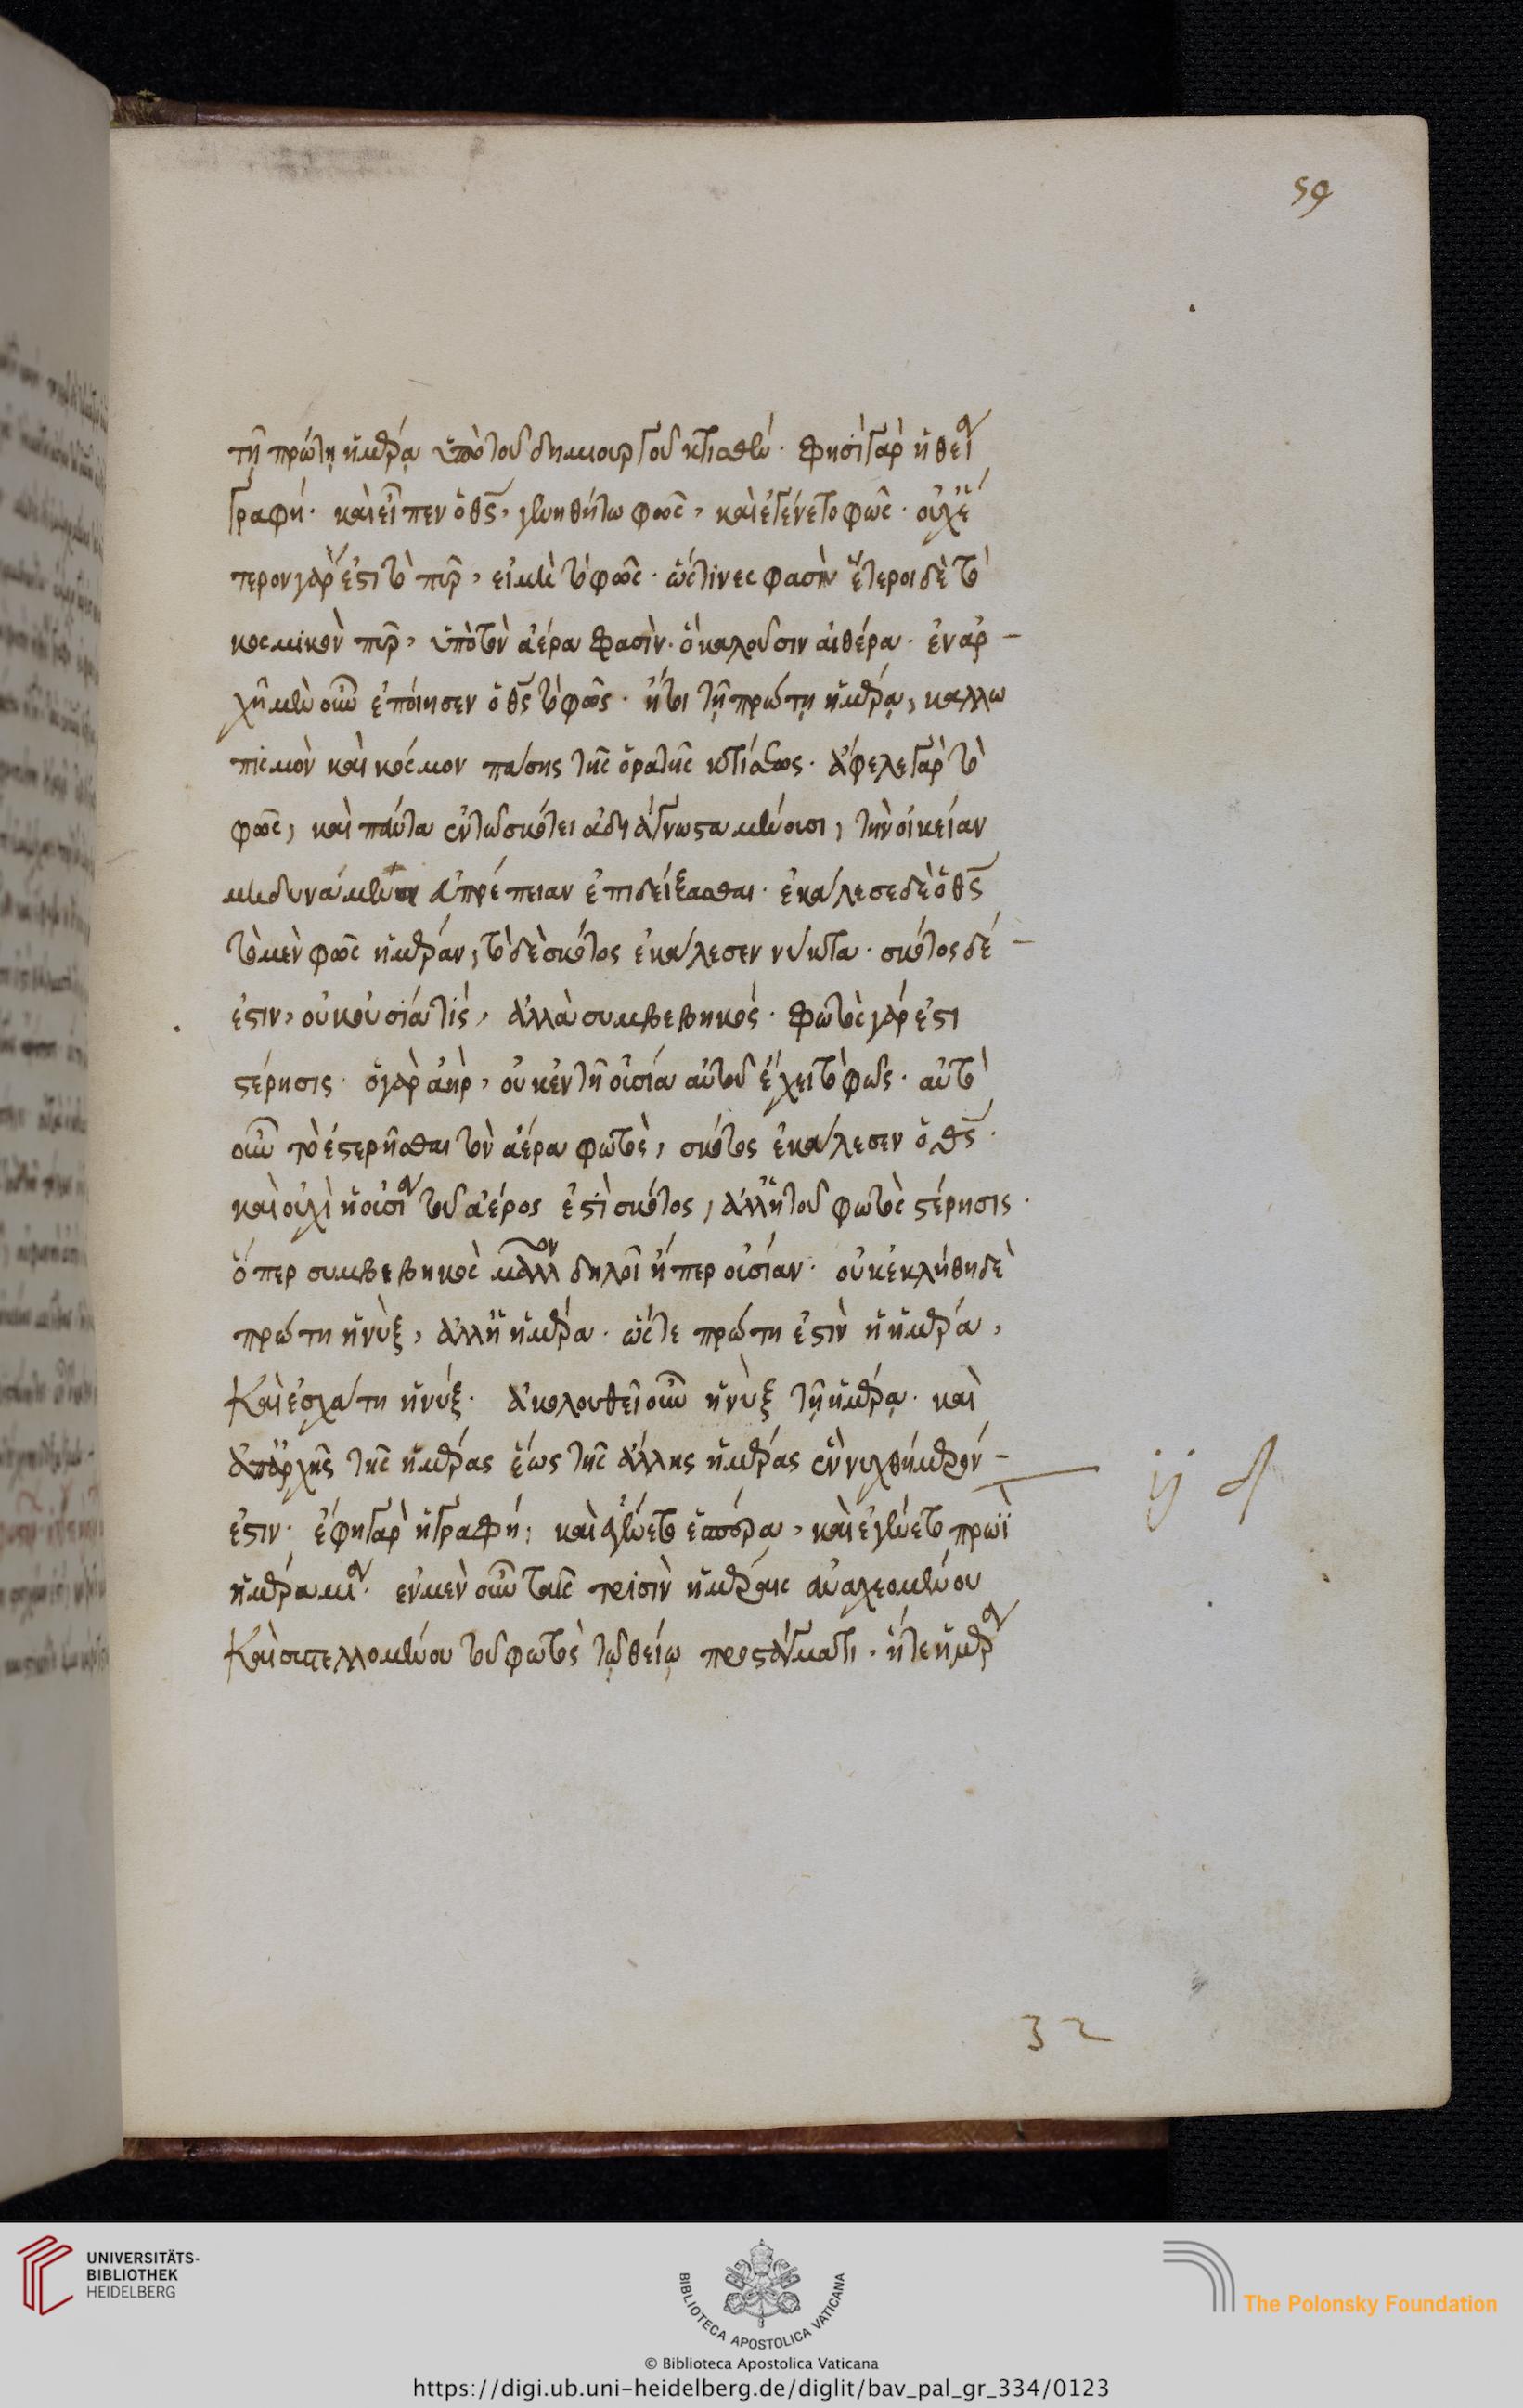 59
τῇ πρώτη ἡμέρᾳ ὑπὸ τοῦ δημιουργοῦ κτισθέν. φησὶ γὰρ ἡ θεία
γραφή. καὶ εἶπεν ὁ θς, γενηθήτω φῶς, καὶ ἐγένετο φῶς. οὐχ ἕ
τερον γάρ ἐστι τὸ πῦρ, εἰ μὴ τὸ φῶς. ὥς τινές φασὶν ἕτεροι δὲ τὸ
κοσμικὸν πῦρ, ὑπὸ τὸν ἀέρα φασὶν. ὃ καλοῦσιν αἰθέρα. ἐν ἀρ –
χῇ μὲν οὖν ἐποίησεν ὁ θς τὸ φῶς. ἤτοι τῇ πρώτῃ ἡμέρᾳ, καλλω
πισμὸν καὶ κόσμον πάσης τῆς ὁρατῆς κτίσεως. ἄφελε γὰρ τὸ
φῶς, καὶ πάντα ἐν τῶ σκότει ἀδιάγνωστα μένουσι, τὴν οἰκείαν
μὴ δυνάμενα ἀπρέπειαν ἐπιδείξασθαι. ἐκάλεσε δὲ ὁ θς
τὸ μὲν φῶς ἡμέραν, τὸ δὲ σκότος ἐκάλεσεν νύκτα. σκότος δέ –
ἐστιν, οὐκ οὐσία τίς, ἀλλὰ συμβεβηκός. φωτὸς γάρ ἐστι
στέρησις. ὁ γὰρ ἀὴρ, οὐκ ἐν τῇ οὐσία αὐτοῦ ἔχει τὸ φῶς. αὐτὸ
οὖν τὸ ἐστερῆσθαι τὸν ἀέρα φωτὸς, σκότος ἐκάλεσεν ὁ θς.
καὶ οὐχὶ ἡ οὐσία τοῦ ἀέρος ἐστὶ σκότος, ἀλλ' ἡ τοῦ φωτὸς στέρησις.
ὅπερ συμβεβηκὸς μᾶλλον δηλοῖ ἤπερ οὐσίαν. οὐκ ἐκλήθη δὲ
πρώτη ἡ νὺξ, ἀλλ' ἡ ἡμέρα. ὥστε πρώτη ἐστὶν ἡ ἡμέρα,
Καὶ ἐσχάτη ἡ νύξ. ἀκολουθεῖ οὖν ἡ νὺξ τῇ ἡμέρᾳ. καὶ
ἀπ' ἀρχῆς τῆς ἡμέρας ἕως τῆς ἄλλης ἡμέρας ἓν νυχθήμερόν –
ἐστιν. ἔφη γὰρ ἡ γραφή; καὶ ἐγένετο ἑσπέρα, καὶ ἐγένετο πρωῒ
ἡμέρα μία. ἐν μὲν οὖν ταῖς τρισὶν ἡμέραις ἀναχεομένου
Καὶ συστελλομένου τοῦ φωτὸς τῷ θείῳ προστάγματι. ἥ τε ἡμέρα
32
UNIVERSITÄTS-
BIBLIOTHEK
HEIDELBERG
BIBLIOTECA APOSTOLICA VATICANA
The Polonsky Foundation
© Biblioteca Apostolica Vaticana
https://digi.ub.uni-heidelberg.de/diglit/bav_pal_gr_334/0123